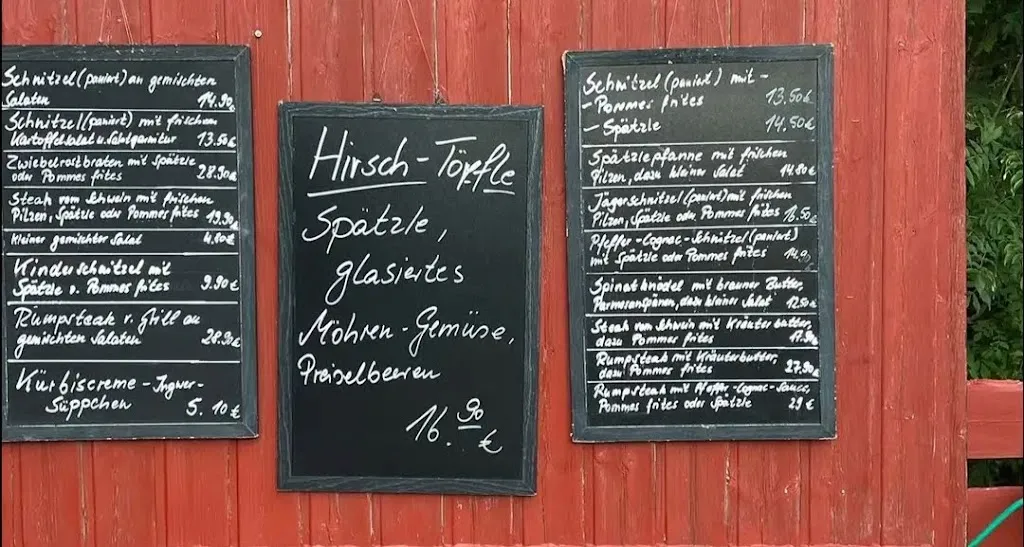 Schnitzel (paniert) an gemischten
Salaten 14.90€
Schnitzel (paniert) mit frischem
Kartoffelsalat u. Salatgarnitur 13.50€
Zwiebelrostbraten mit Spätzle
oder Pommes frites 28.90€
Steak vom Schwein mit frischen
Pilzen, Spätzle oder Pommes frites 19.90€
kleiner gemischter Salat 4.80€
Kinderschnitzel mit
Spätzle o. Pommes frites 9.90€
Rumpsteak v. Grill an
gemischten Salaten 28.90€
Kürbiscreme-Ingwer-
Süppchen 5.10€
Hirsch-Töpfle
Spätzle,
glasiertes
Möhren-Gemüse,
Preiselbeeren
16.90 €
Schnitzel (paniert) mit-
- Pommes frites 13.50€
- Spätzle 14.50€
Spätzlepfanne mit frischen
Pilzen, dazu kleiner Salat 14.80€
Jägerschnitzel (paniert) mit frischen
Pilzen, Spätzle oder Pommes frites 16.50€
Pfeffer-Cognac-Schnitzel (paniert)
mit Spätzle oder Pommes frites
Spinatknödel mit brauner Butter,
Parmesanspänen, dazu kleiner Salat 12.50€
Steak vom Schwein mit Kräuterbutter,
dazu Pommes frites
Rumpsteak mit Kräuterbutter,
dazu Pommes frites 27.90€
Rumpsteak mit Pfeffer-Cognac-Sauce,
Pommes frites oder Spätzle 29 €